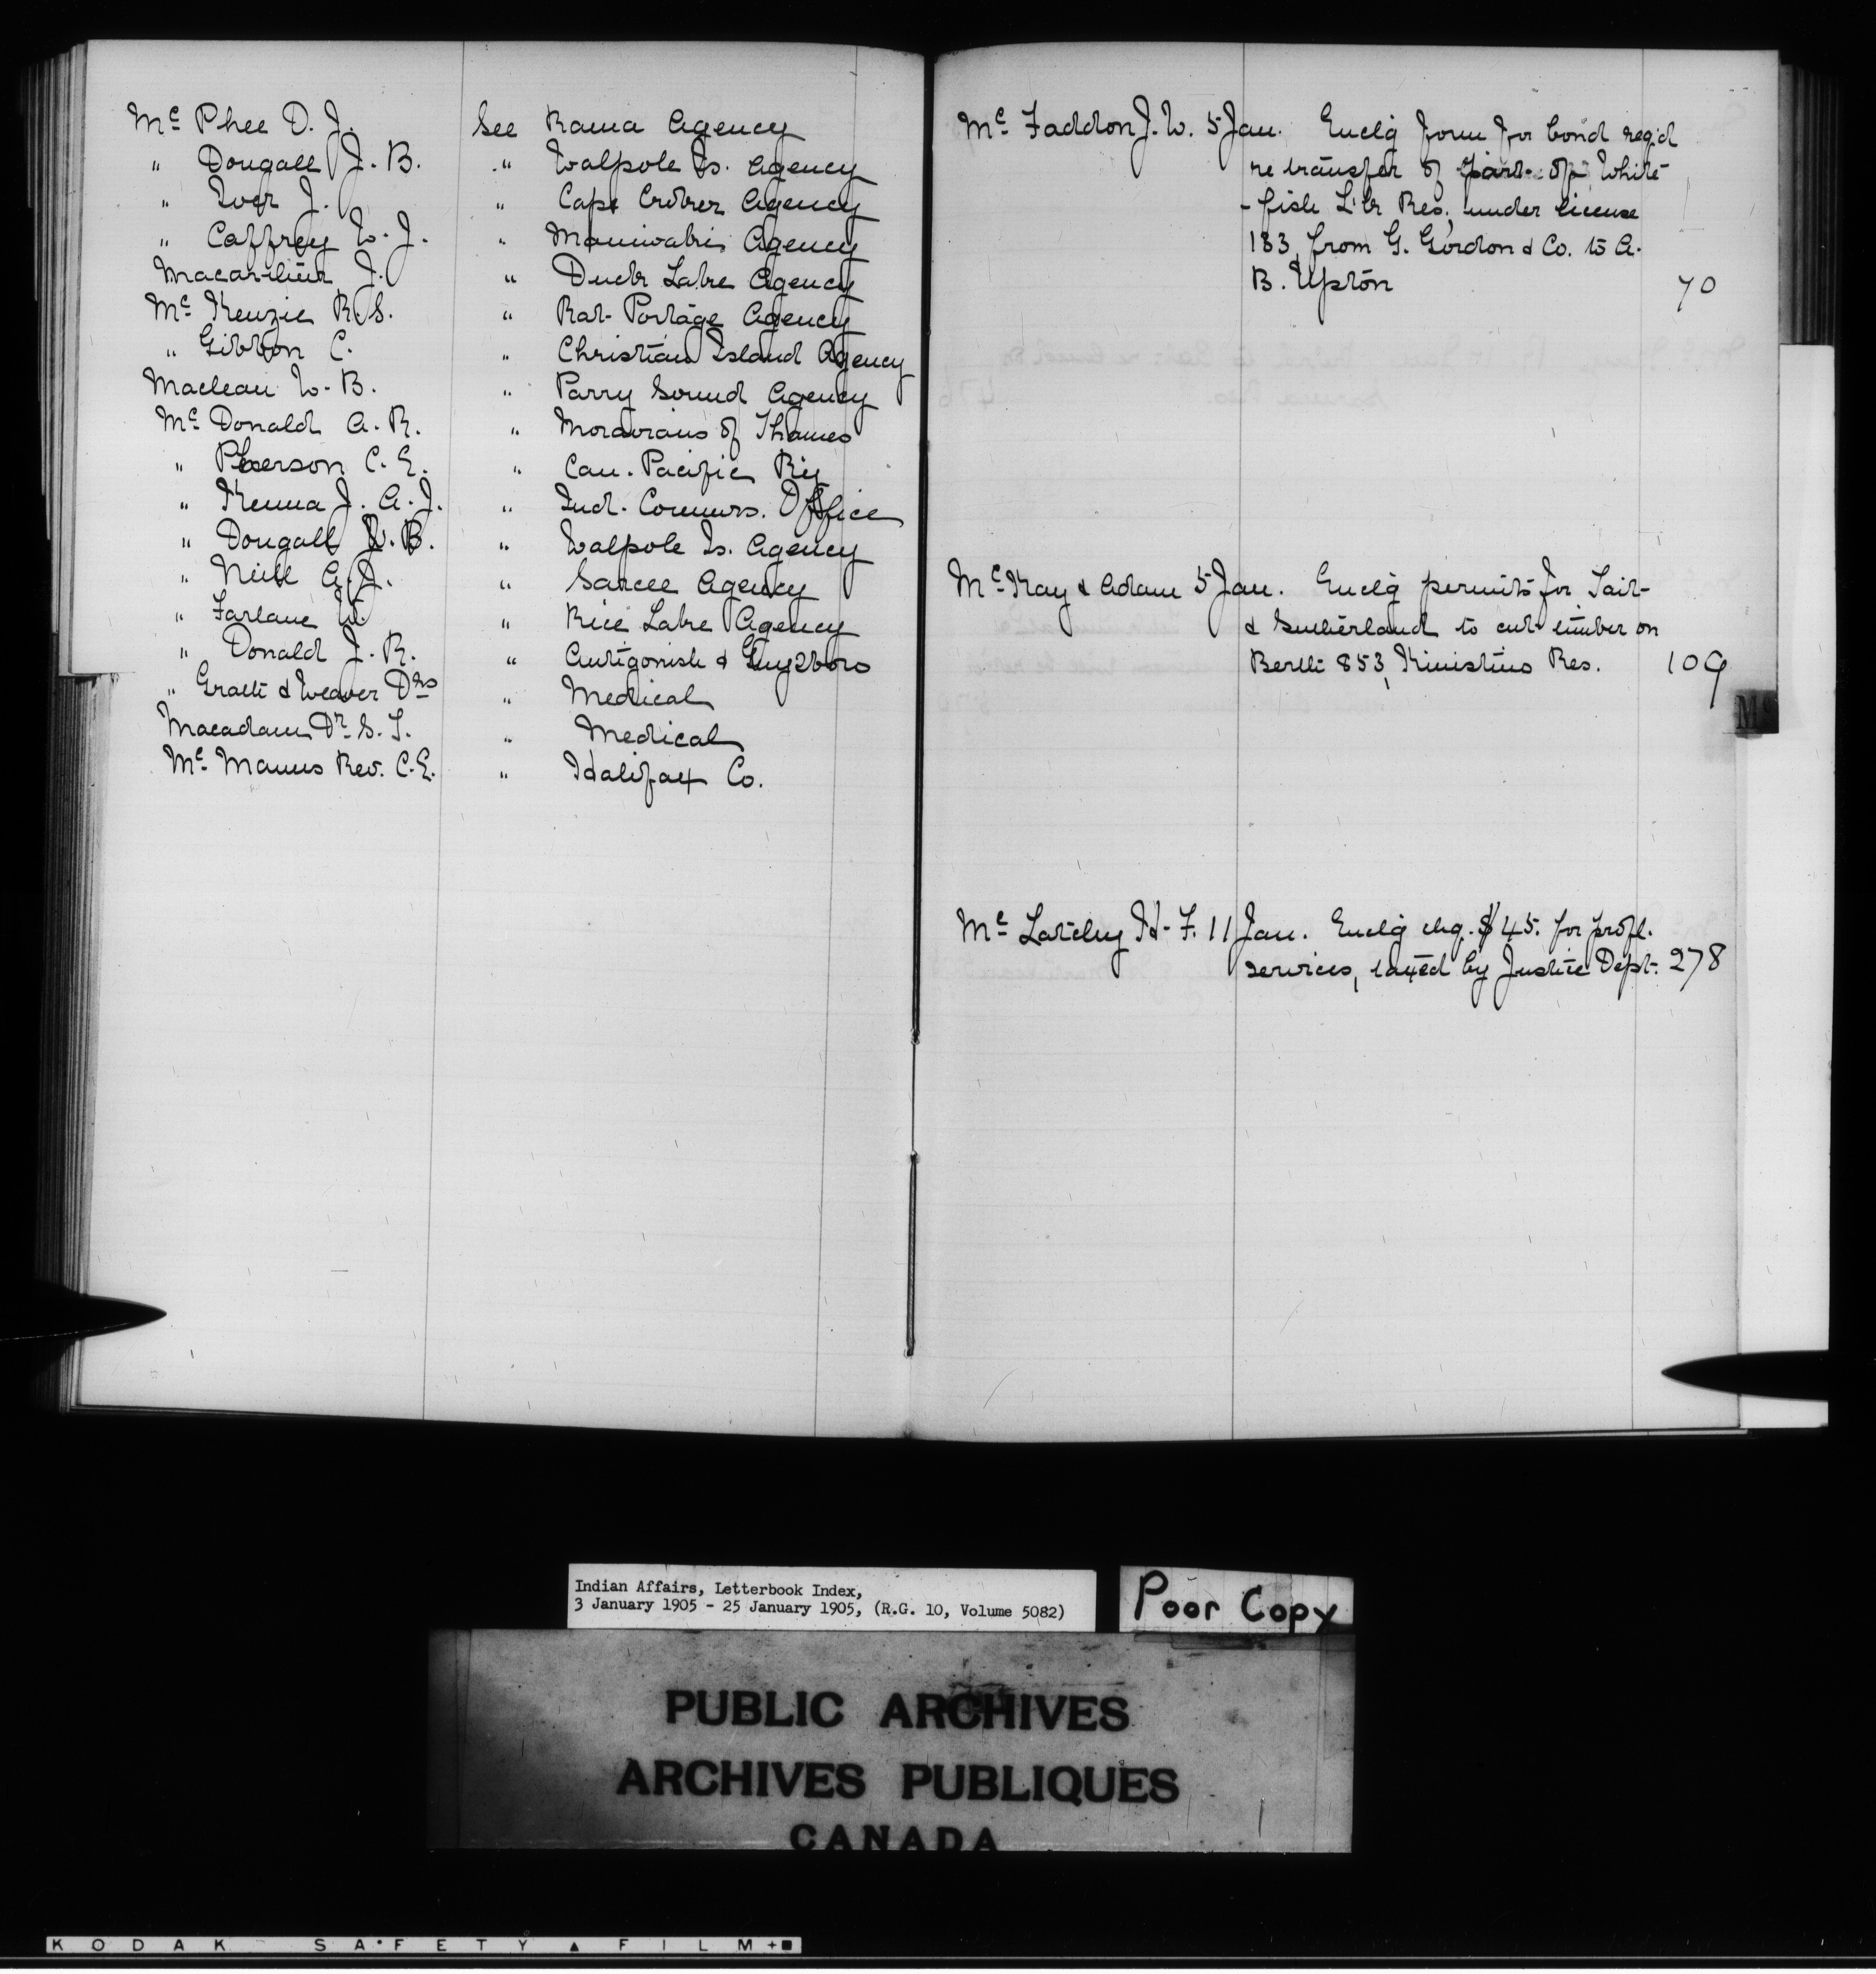 Mc Phee D. J. See Rama Agency
" Dougall J. B. " Walpole Is. Agency
" Iver J. " Cape Croker Agency
" Caffrey W. J. " Maniwaki Agency
Macarthur J. " Duck Lake Agency
Mc Kenzie R. S. " Rat Portage Agency
" Gibbon C. " Christian Island Agency
Maclean W. B. " Parry Sound Agency
Mc Donald A. R. " Moravians of Thames
" Pherson C. E. " Can. Pacific Ry
" Kenna J. A. J. " Ind. Commrs. Office
" Dougall J. B. " Walpole Is. Agency
" Neill A. J. " Sarcee Agency
" Farlane W. " Rice Lake Agency
" Donald J. R. " Antigonish & Guysboro
" Grath & Weaver Drs " Medical
Macadam Dr S. T. " Medical
Mc Manus Rev. C. E. " Halifax Co.
Mc Faddon J. W. 5 Jan. Enclg form for bond reqd
re transfer of part of White-
-fish L'k Res., under license
183, from G. Gordon & Co. to A.
B. Upton 70
Mc Kay & Adam 5 Jan. Enclg permits for Tait-
& Sutherland to cut timber on
Berth 853, Kinistino Res. 109
Mc
Mc Latchy H. F. 11 Jan. Enclg chq. $45. for profl.
services, taxed by Justice Dept. 278
Indian Affairs, Letterbook Index,
3 January 1905 - 25 January 1905, (R.G. 10, Volume 5082)
Poor Copy
PUBLIC ARCHIVES
ARCHIVES PUBLIQUES
CANADA
KODAK SAFETY FILM